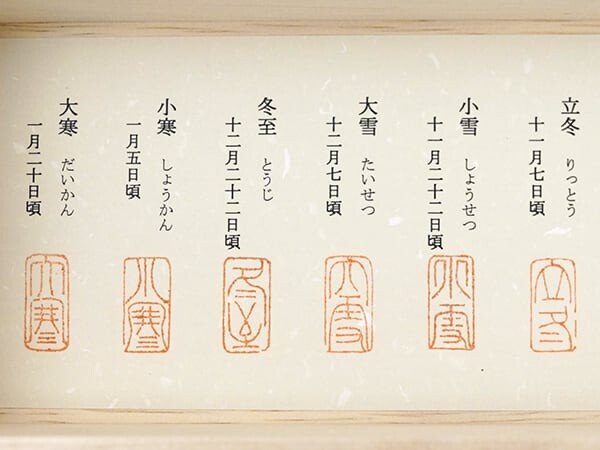 立冬 りっとう
十一月七日頃
立冬
小雪 しょうせつ
十一月二十二日頃
小雪
大雪 たいせつ
十二月七日頃
大雪
冬至 とうじ
十二月二十二日頃
冬至
小寒 しょうかん
一月五日頃
小寒
大寒 だいかん
一月二十日頃
大寒